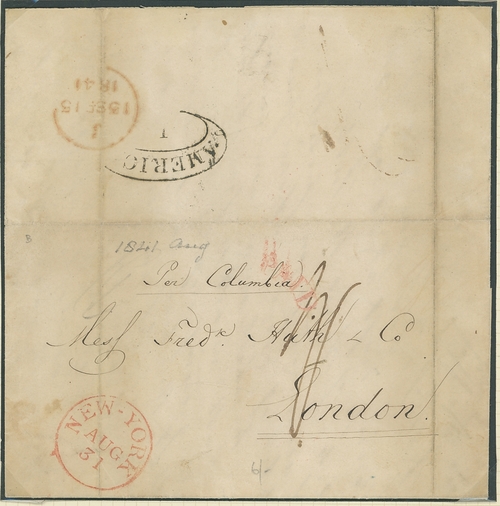 J
15 SE 15
1841
AMERIC
1
1841 Aug
Per Columbia.
Mess Fredk. Huth & Co
London.
NEW-YORK
AUG
31
6/-